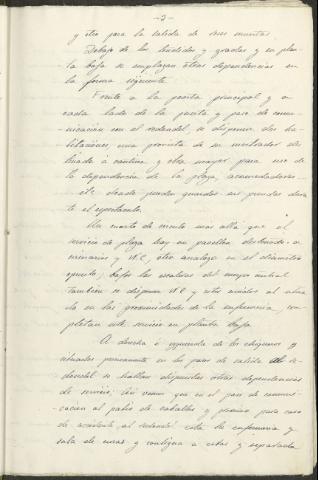 -3-
y otro para la salida de reses muertas
Debajo de los tendidos y gradas y en plan-
ta baja se emplazan otras dependencias en
la forma siguiente
Frente a la puerta principal y a
cada lado de la puerta y paso de comu-
nicación con el redondel, se disponen dos ha-
bitaciones, una provista de su mostrador des-
tinada a cantina y otra mayor para uso de
la dependencia de la plaza, acomodadores
etc donde puedan guardar sus prendas duran-
te el espectáculo.
Un cuarto de círculo más allá que el
servicio de plaza hay un pasillo destinado a
urinarios y W.C, otro análogo en el diámetro
opuesto; bajo las escaleras del cuerpo central
también se disponen W.C y este anejos al situa-
do en las proximidades de la enfermería, com-
pletan este servicio en planta baja.
A derecha e izquierda de los chiqueros y
situados precisamente en los pasos de salida al re-
dondel se hallan dispuestas otras dependencias
de servicio; Así vemos que en el paso de comuni-
cación al patio de caballos y preciso para caso
de accidente al redondel está la enfermería y
sala de curas y contigua a estas y separada